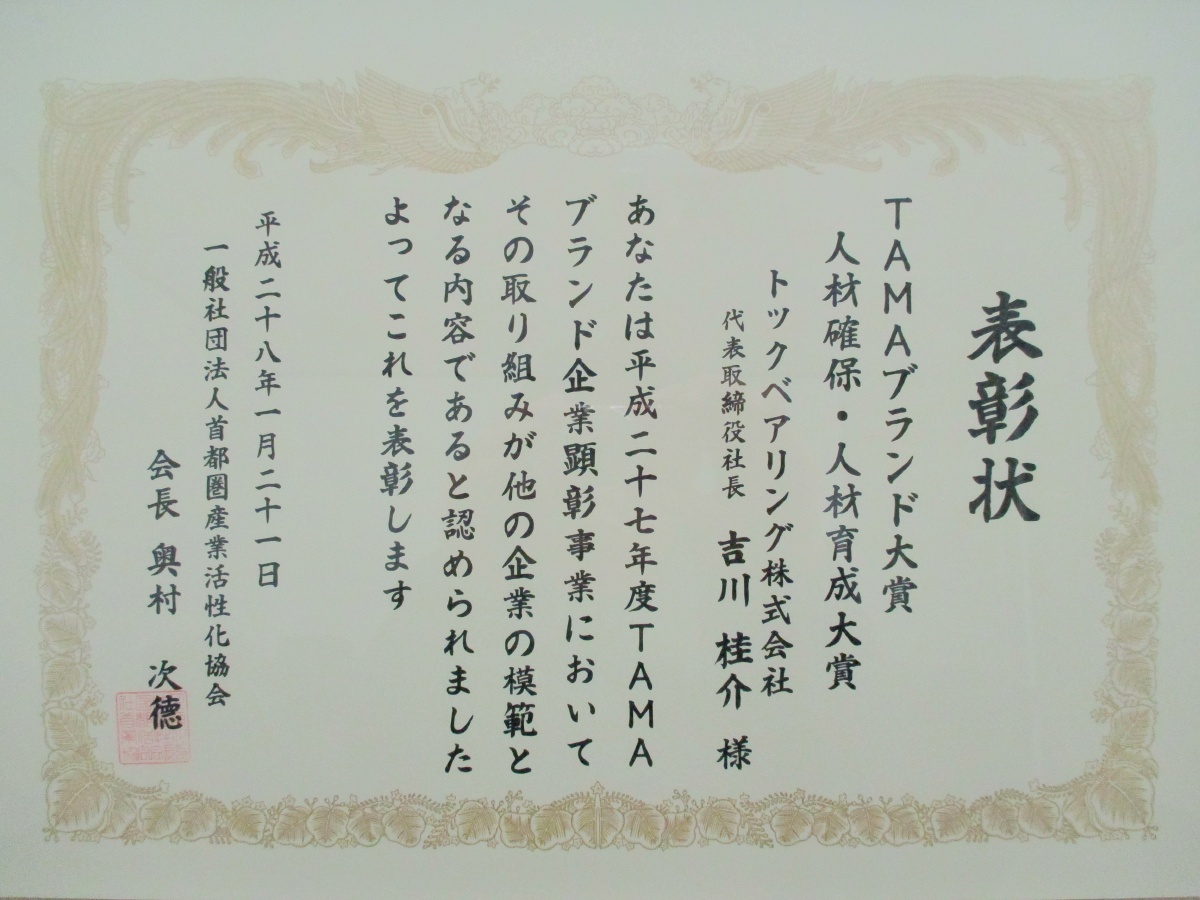 表彰状
TAMAブランド大賞
人材確保・人材育成大賞
トックベアリング株式会社
代表取締役社長 吉川 桂介 様
あなたは平成二十七年度TAMA
ブランド企業顕彰事業において
その取り組みが他の企業の模範と
なる内容であると認められました
よってこれを表彰します
平成二十八年一月二十一日
一般社団法人首都圏産業活性化協会
会長 奥村 次德